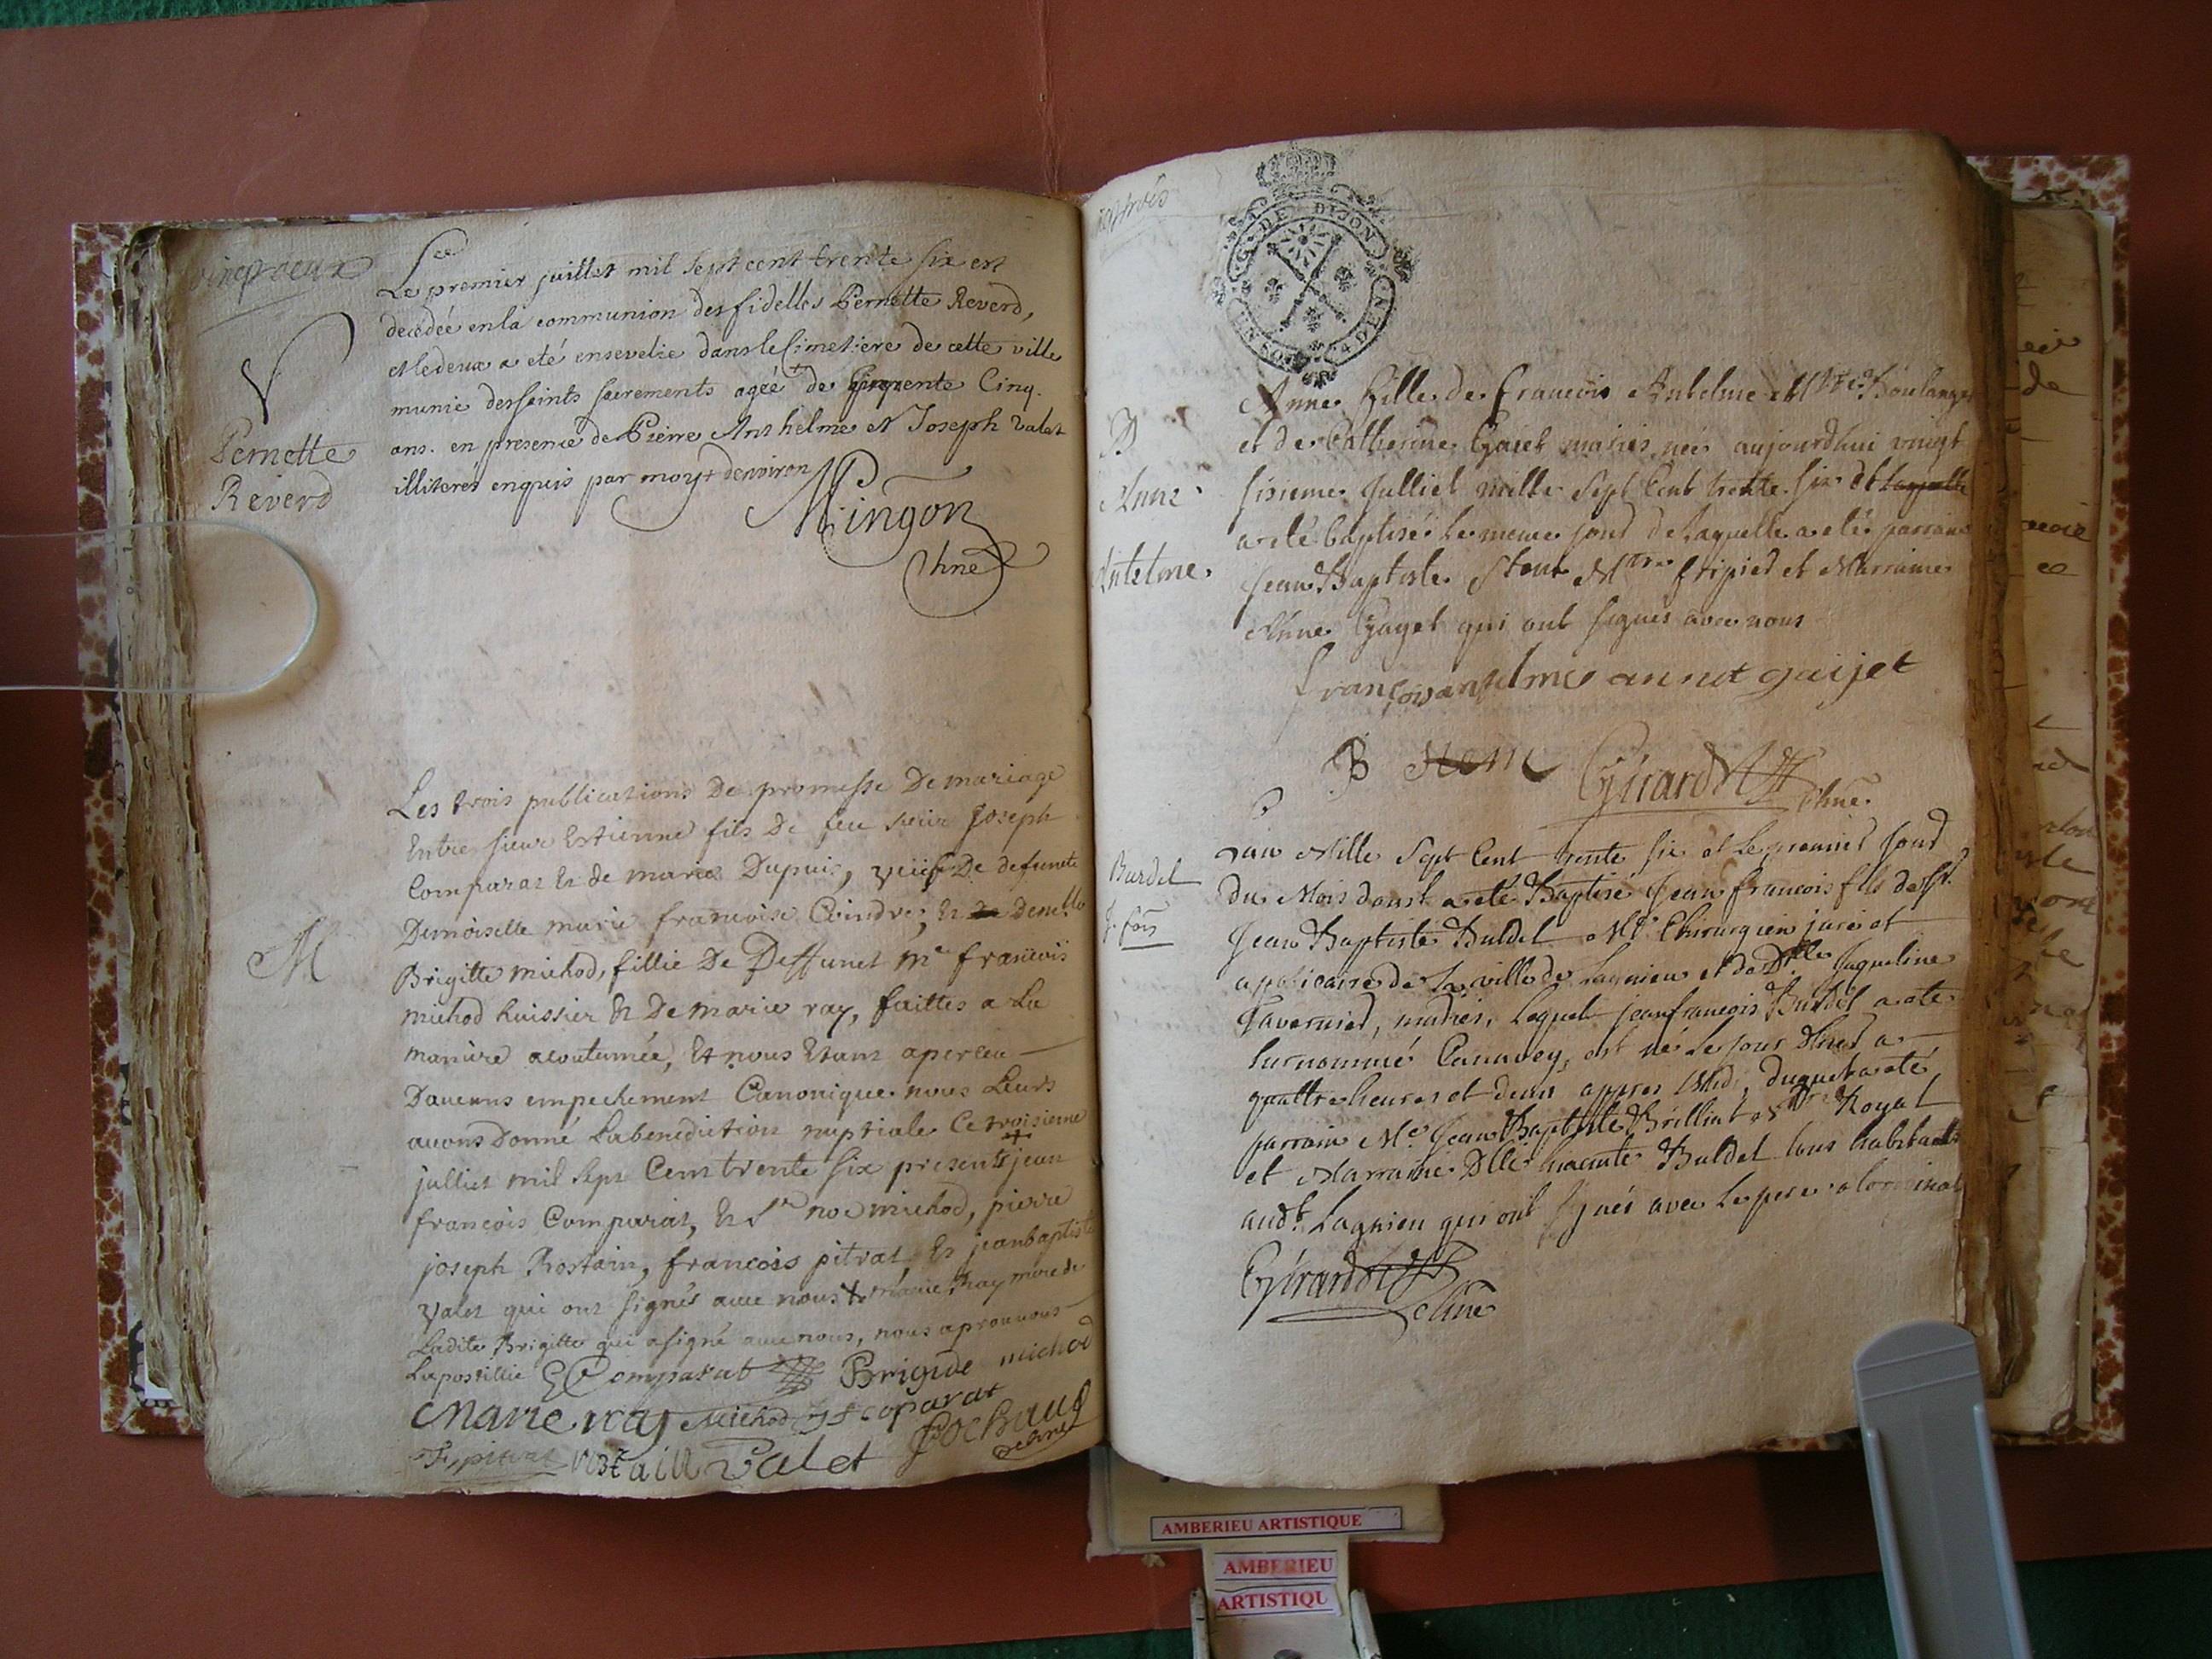 vingt deux
Le premier juillet mil sept cent trente six est
decedée en la communion des fidelles Pernette Reverd,
et le deux a eté ensevelie dans le Cimetiere de cette ville
munie des saints sacrements agée + de Cinq.
ans. en presence de Pierre Anthelme et Joseph Valet
illiterés enquis par moy + denviron
Mingon
Pernette
Reverd
M
Les trois publications De promesse De mariage
Entre sieur Estienne fils De feu sieur Joseph
Comparat Et de marie Dupuis, veuf De defuncte
Demoiselle marie francoise Cindre, Et Demlle
Brigitte michod, fillie De Deffunct me francois
michod huissier Et De marie ray, faittes a La
maniere acoutumée, Et nous Etant aperceu
Daucuns empechement Canonique nous Leurs
auons Donné La benediction nuptiale Ce troisieme
julliet mil sept Cent trente six presents jean
francois Comparat, Et Sr noe michod, pierre
joseph Rostain, francois pitrat, Et jean baptiste
Valet qui ont signés auec nous + marie Ray mere de
Ladite Brigitte qui a signé auec nous, nous aprouuons
Lapostillie E Comparat Brigide michod
Marie ray Michod j f coparat
F, pitrat rostain Valet Cochaud
G. DE DIJON
Anne fille de francois Antelme Mtre Boulanger
et de Catherine Gaiet mariés née aujourdhui vingt
sixieme Julliet mille Sept Cent trente six et laquelle
a eté baptisé le meme jour de laquelle a eté parrain
Jean Baptiste Mtre fripier et Marraine
Anne Gayet qui ont signés avec nous
Anne
Antelme
françois antelme annet gaijet
B
Girard
Burdel
J. fois
Lan Mille Sept Cent trente six et le premier jour
du Mois daoust a eté Baptisé Jean francois fils de Sr.
Jean Baptiste Burdel Me Chirurgien juré et
apoticaire de la ville de Lagnieu et de Dlle Jaqueline
Tavernier, mariés, lequel jean francois Burdel a eté
surnommé est né le jour dhier a
quattre heures et demi appres Midi, duquel a eté
parrain Me. Jean Baptiste Brillint Royal
et Marraine Dlle Burdel tous habitants
audt. Lagnieu qui ont signés avec le pere a loriginal
Girard
AMBERIEU ARTISTIQUE
AMBERIEU
ARTISTIQU